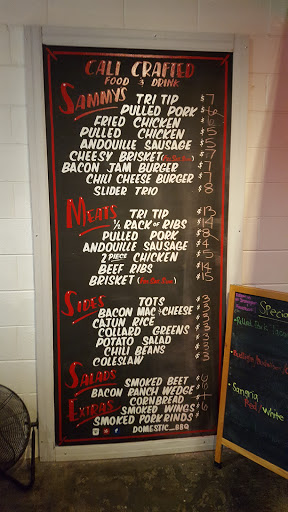 CALI CRAFTED
FOOD & DRINK
SAMMYS
TRI TIP $7
PULLED PORK $6
FRIED CHICKEN $6
PULLED CHICKEN $5
ANDOUILLE SAUSAGE $5
CHEESY BRISKET $7
BACON JAM BURGER $7
CHILI CHEESE BURGER $7
SLIDER TRIO $8
MEATS
TRI TIP $13
1/2 RACK OF RIBS $14
PULLED PORK $8
ANDOUILLE SAUSAGE $4
2 PIECE CHICKEN $5
BEEF RIBS $14
BRISKET $15
SIDES
TOTS $3
BACON MAC & CHEESE $3
CAJUN RICE $3
COLLARD GREENS $3
POTATO SALAD $3
CHILI BEANS $3
COLESLAW $3
SALADS
SMOKED BEET
BACON RANCH WEDGE
EXTRAS
CORNBREAD
SMOKED WINGS $6
SMOKED PORK RINDS
DOMESTIC_BBQ
Special
Pulled Pork
Sangria
Red/White